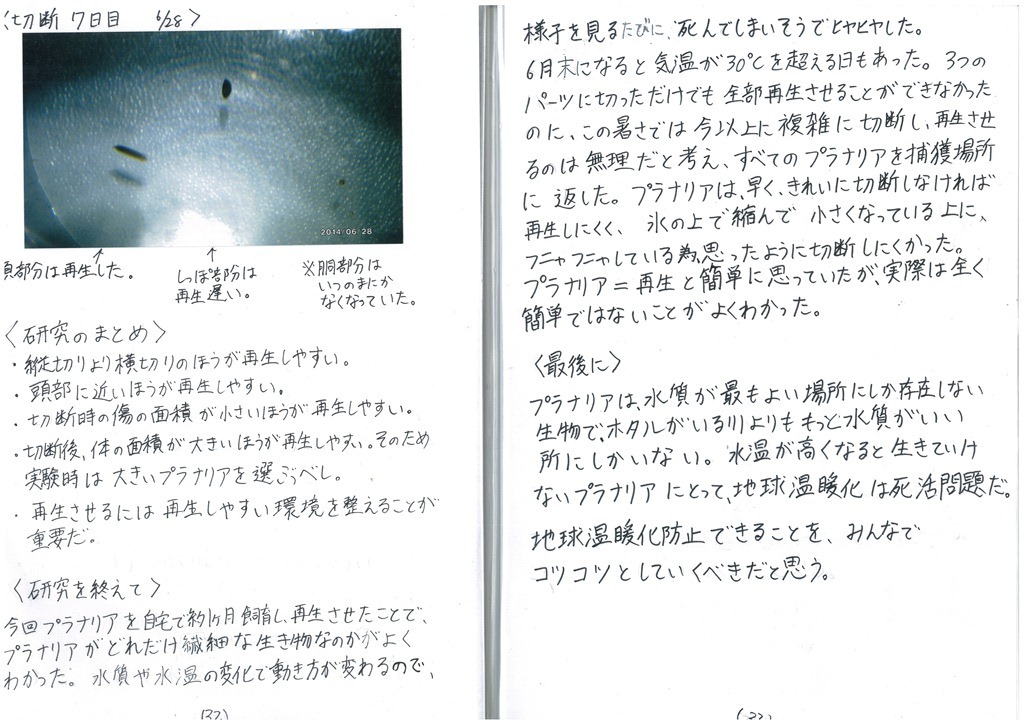 〈切断 7日目 6/28〉
2014/06/28
頭部分は再生した。
しっぽ部分は
再生遅い。
※胴部分は
いつのまにか
なくなっていた。
〈研究のまとめ〉
・縦切りより横切りのほうが再生しやすい。
・頭部に近いほうが再生しやすい。
・切断時の傷の面積が小さいほうが再生しやすい。
・切断後、体の面積が大きいほうが再生しやすい。そのため
実験時は大きいプラナリアを選ぶべし。
・再生させるには再生しやすい環境を整えることが
重要だ。
〈研究を終えて〉
今回プラナリアを自宅で約1ヶ月飼育し、再生させたことで、
プラナリアがどれだけ繊細な生き物なのかがよく
わかった。水質や水温の変化で動き方が変わるので、
(32)
様子を見るたびに、死んでしまいそうでヒヤヒヤした。
6月末になると気温が30℃を超える日もあった。3つの
パーツに切っただけでも全部再生させることができなかった
のに、この暑さでは今以上に複雑に切断し、再生させ
るのは無理だと考え、すべてのプラナリアを捕獲場所
に返した。プラナリアは、早く、きれいに切断しなければ
再生しにくく、氷の上で縮んで小さくなっている上に、
フニャフニャしている為、思ったように切断しにくかった。
プラナリア=再生と簡単に思っていたが、実際は全く
簡単ではないことがよくわかった。
〈最後に〉
プラナリアは、水質が最もよい場所にしか存在しない
生物で、ホタルがいる川よりももっと水質がいい
所にしかいない。水温が高くなると生きていけ
ないプラナリアにとって、地球温暖化は死活問題だ。
地球温暖化防止できることを、みんなで
コツコツとしていくべきだと思う。
(33)